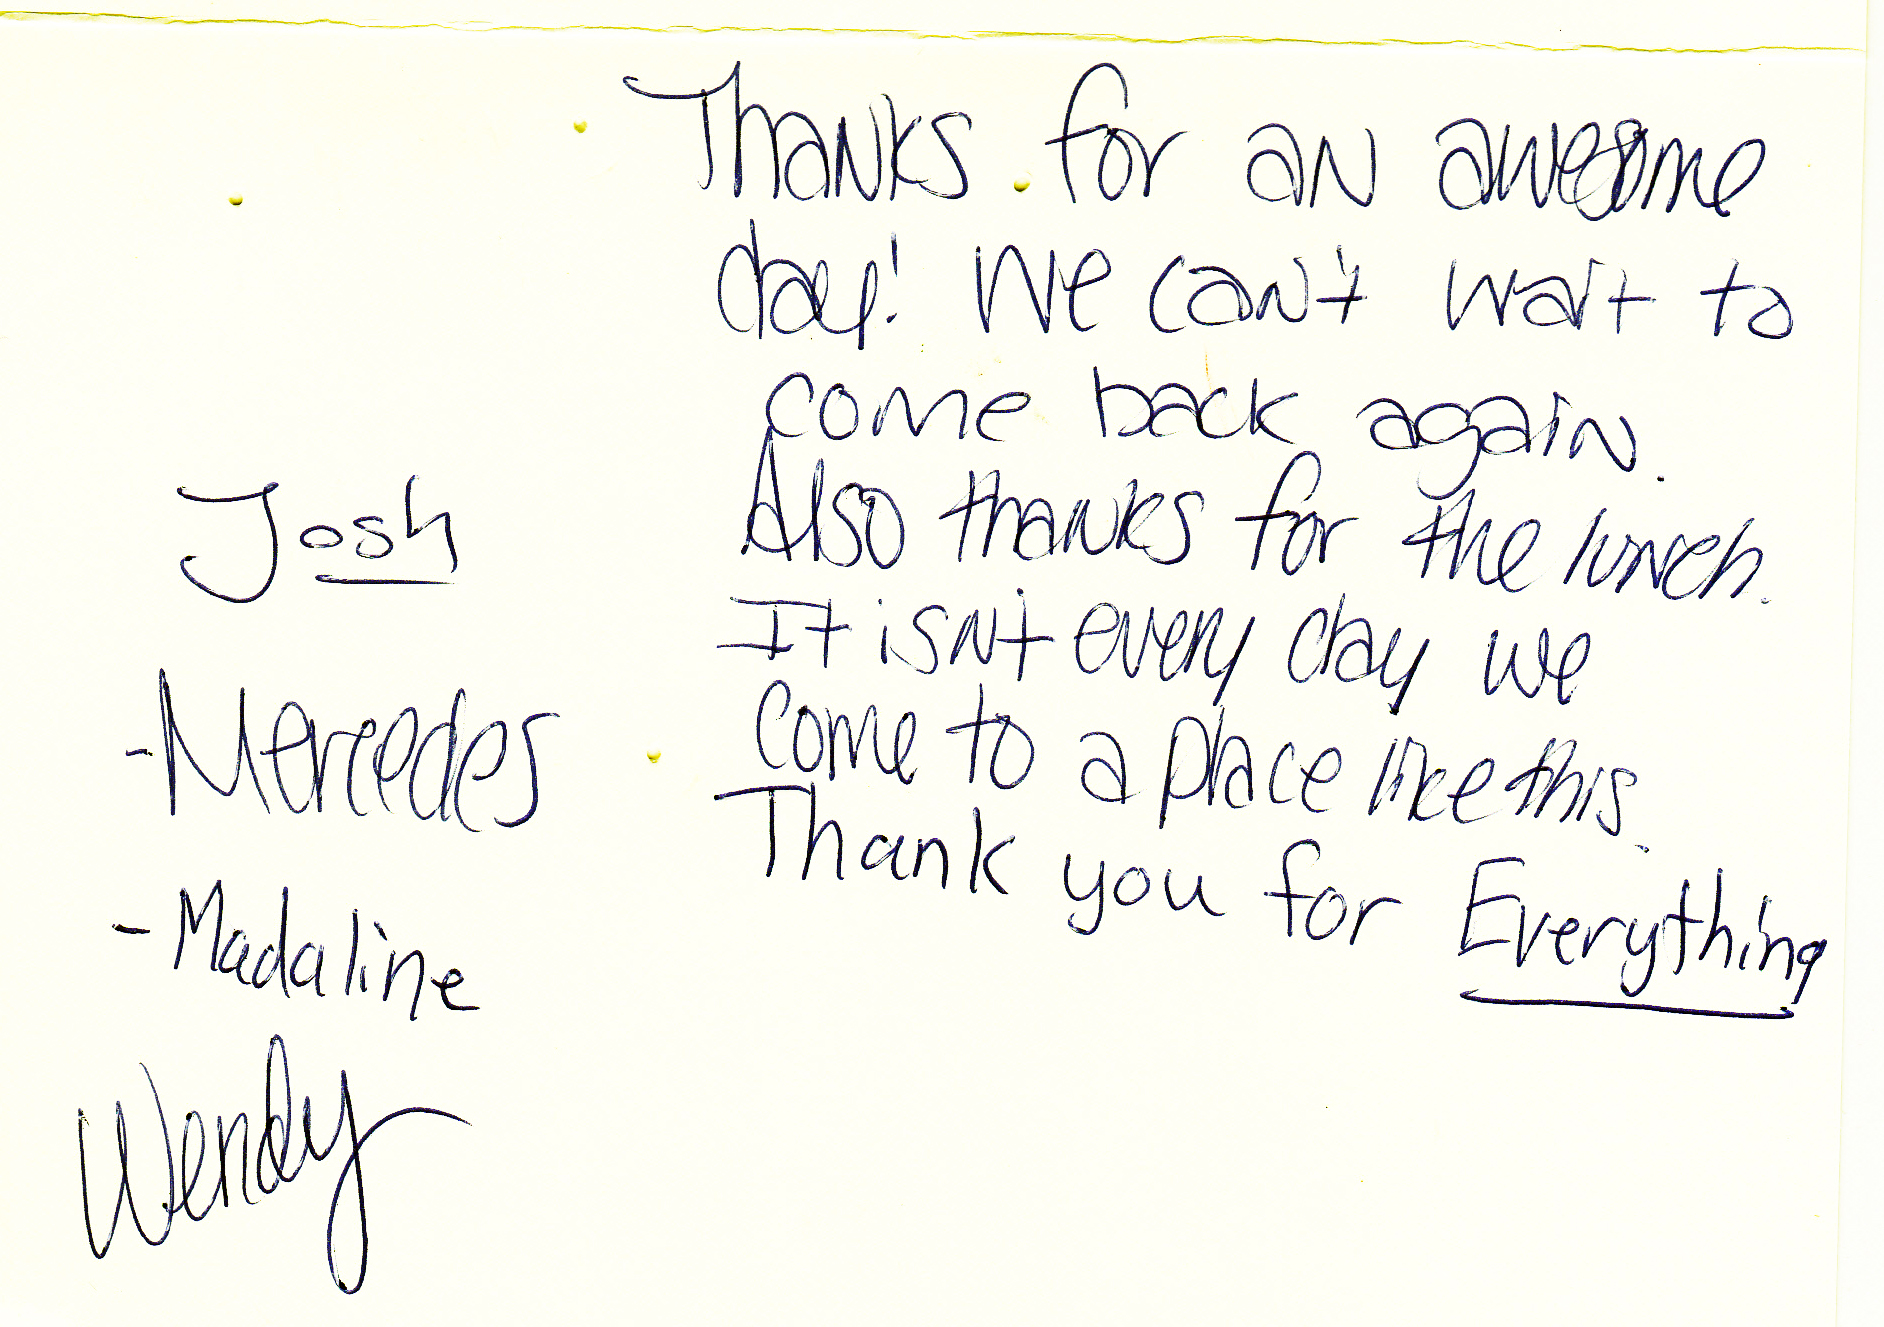 Thanks for an awesome
day! We can't wait to
come back again.
Also thanks for the lunch.
It isn't every day we
come to a place like this.
Thank you for Everything
Josh
-Mercedes
-Madaline
Wendy